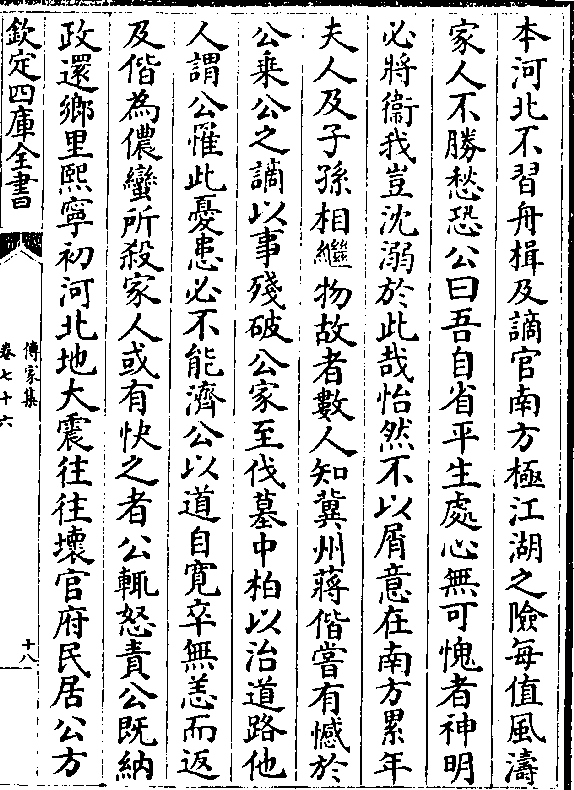 本河北不習舟楫及謫官南方極江湖之險每值風濤
家人不勝愁恐公曰吾自省平生處心無可愧者神明
必將衞我豈沈溺於此哉怡然不以屑意在南方累年
夫人及子孫相繼物故者數人知冀州蔣偕嘗有憾於
公乗公之謫以事殘破公家至伐墓中柏以治道路他
人謂公罹此憂患必不能濟公以道自寛卒無恙而返
及偕為儂蠻所殺家人或有快之者公輒怒責公既納
政還鄉里熙寧初河北地大震往往壞官府民居公方
欽定四庫全書
傳家集
卷七十六
十八